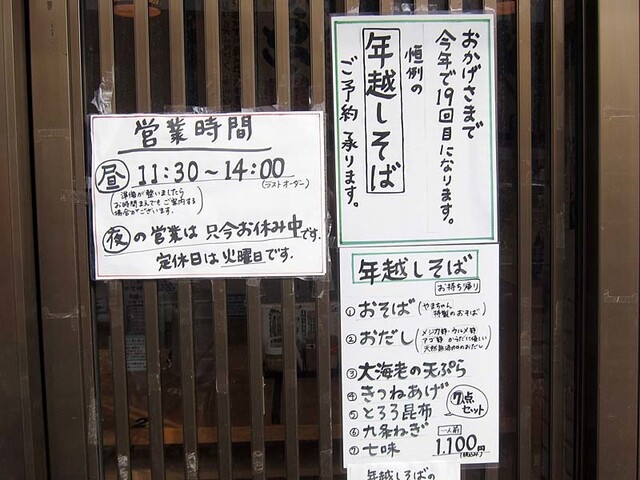 営業時間
昼 11:30～14:00
(ラストオーダー)
(準備が整いましたら
お時間まえでもご案内する
場合がございます。)
夜の営業は只今お休み中です。
定休日は火曜日です.
おかげさまで
今年で19回目になります。
恒例の
年越しそば
ご予約承ります。
年越しそば
お持ち帰り
①おそば(やまちゃん
特製のおそば)
②おだし
③大海老の天ぷら
④きつねあげ
⑤とろろ昆布
⑥九条ねぎ
⑦七味
7点
セット
一人前
1,100円
年越しそばの